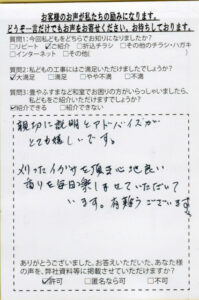 お客様のお声が私たちの励みになります。
どうぞ一言だけでもお声をお寄せください。お待ちしております。
質問1:今回私どもをどちらでお知りになりましたか?
□リピート ☑ご紹介 □折込チラシ □その他のチラシ・ハガキ
□インターネット □その他(
質問2:私どもの工事にはご満足いただけましたでしょうか?
☑大満足 □満足 □やや不満 □不満
質問3:畳やふすまなど和室でお困りの方がいらっしゃいましたら、
私どもをご紹介いただけますでしょうか?
☑紹介できる □紹介できない
親切に説明とアドバイスが
とても嬉しいです。
心地良い
香りを毎日楽しませていただいて
います。有難うございます。
ありがとうございました。お答えいただいた、あなた様
の声を、弊社資料等に掲載させていただけますか?
☑許可 □匿名なら可 □不可